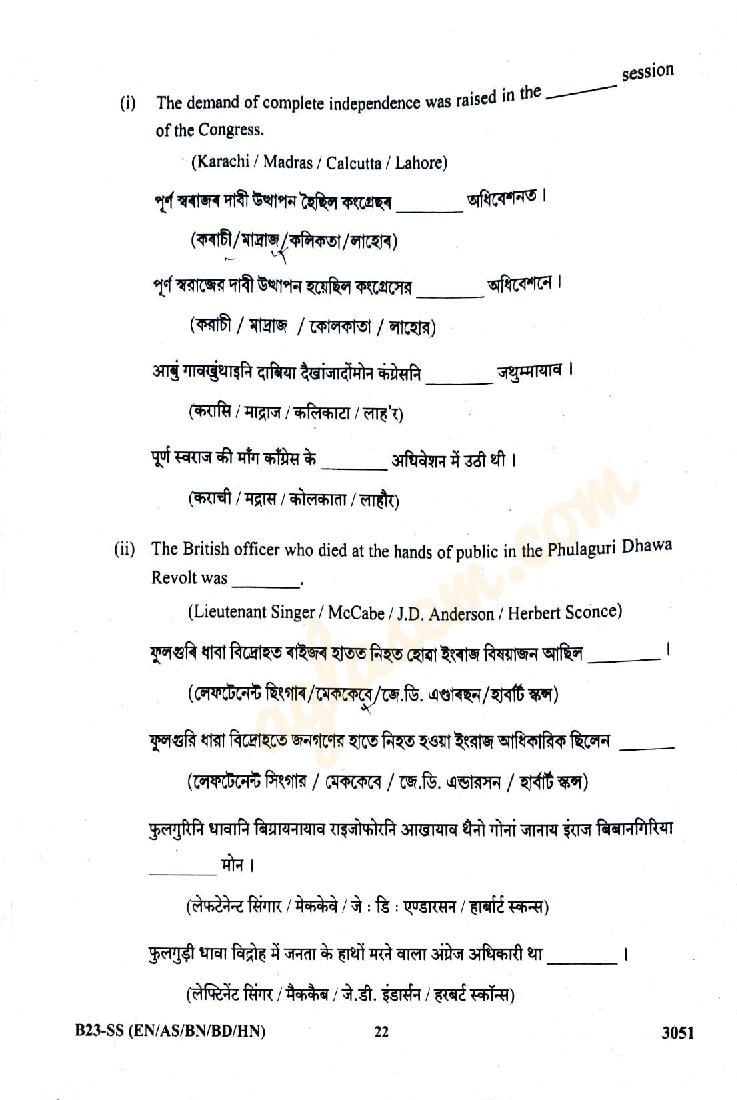 (i) The demand of complete independence was raised in the ________ session
of the Congress.
(Karachi / Madras / Calcutta / Lahore)
পূৰ্ণ স্বৰাজৰ দাবী উত্থাপন হৈছিল কংগ্ৰেছৰ ________ অধিবেশনত ।
(কৰাচী/মাদ্ৰাজ/কলিকতা/লাহোৰ)
পূর্ণ স্বরাজের দাবী উত্থাপন হয়েছিল কংগ্রেসের ________ অধিবেশনে ।
(করাচী / মাদ্রাজ / কোলকাতা / লাহোর)
आबुं गावखुंथाइनि दाबिया दैखांजादोंमोन कंग्रेसनि ________ जथुम्मायाव ।
(करासि / माद्राज / कलिकाटा / लाह'र)
पूर्ण स्वराज की माँग काँग्रेस के ________ अधिवेशन में उठी थी ।
(कराची / मद्रास / कोलकाता / लाहौर)
(ii) The British officer who died at the hands of public in the Phulaguri Dhawa
Revolt was ________.
(Lieutenant Singer / McCabe / J.D. Anderson / Herbert Sconce)
ফুলগুৰি ধাৱা বিদ্ৰোহত ৰাইজৰ হাতত নিহত হোৱা ইংৰাজ বিষয়াজন আছিল ________ ।
(লেফটেনেন্ট ছিংগাৰ/মেককেবে/জে.ডি. এণ্ডাৰছন/হাৰ্বাৰ্ট স্কন্স)
ফুলগুরি ধাৱা বিদ্রোহতে জনগণের হাতে নিহত হওয়া ইংরাজ আধিকারিক ছিলেন ________
(লেফটেনেন্ট সিংগার / মেককেবে / জে.ডি. এন্ডারসন / হার্বার্ট স্কন্স)
फुलगुरिनि धावानि बिग्रायनायाव राइजोफोरनि आखायाव थैनो गोनां जानाय इंराज बिबानगिरिया
________ मोन ।
(लेफटेनेन्ट सिंगार / मेककेवे / जे : डि : एण्डारसन / हार्बार्ट स्कन्स)
फुलगुड़ी धावा विद्रोह में जनता के हाथों मरने वाला अंग्रेज अधिकारी था ________ ।
(लेफ्टिनेंट सिंगर / मैककैब / जे.डी. इंडार्सन / हरबर्ट स्कॉन्स)
B23-SS (EN/AS/BN/BD/HN) 22 3051